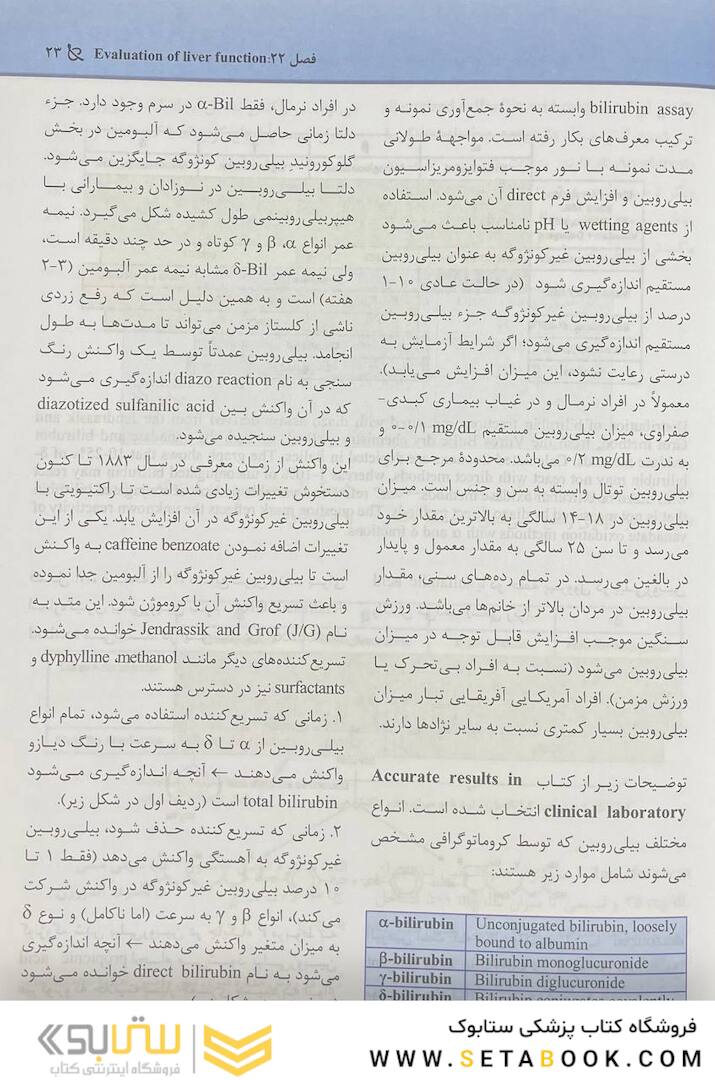 فصل ۲۲: Evaluation of liver function ۲۳
bilirubin assay وابسته به نحوهٔ جمع‌آوری نمونه و
ترکیب معرف‌های بکار رفته است. مواجههٔ طولانی
مدت نمونه با نور موجب فتوایزومریزاسیون
بیلی‌روبین و افزایش فرم direct آن می‌شود. استفاده
از wetting agents یا pH نامناسب باعث می‌شود
بخشی از بیلی‌روبین غیرکونژوگه به عنوان بیلی‌روبین
مستقیم اندازه‌گیری شود (در حالت عادی ۱۰-۱
درصد از بیلی‌روبین غیرکونژوگه جزء بیلی‌روبین
مستقیم اندازه‌گیری می‌شود؛ اگر شرایط آزمایش به
درستی رعایت نشود، این میزان افزایش می‌یابد).
معمولاً در افراد نرمال و در غیاب بیماری کبدی-
صفراوی، میزان بیلی‌روبین مستقیم ۰-۰/۱ mg/dL و
به ندرت ۰/۲ mg/dL می‌باشد. محدودهٔ مرجع برای
بیلی‌روبین توتال وابسته به سن و جنس است. میزان
بیلی‌روبین در ۱۸-۱۴ سالگی به بالاترین مقدار خود
می‌رسد و تا سن ۲۵ سالگی به مقدار معمول و پایدار
در بالغین می‌رسد. در تمام رده‌های سنی، مقدار
بیلی‌روبین در مردان بالاتر از خانم‌ها می‌باشد. ورزش
سنگین موجب افزایش قابل توجه در میزان
بیلی‌روبین می‌شود (نسبت به افراد بی‌تحرک یا
ورزش مزمن). افراد آمریکایی آفریقایی تبار میزان
بیلی‌روبین بسیار کمتری نسبت به سایر نژادها دارند.
توضیحات زیر از کتاب Accurate results in
clinical laboratory انتخاب شده است. انواع
مختلف بیلی‌روبین که توسط کروماتوگرافی مشخص
می‌شوند شامل موارد زیر هستند:
α-bilirubin Unconjugated bilirubin, loosely
bound to albumin
β-bilirubin Bilirubin monoglucuronide
γ-bilirubin Bilirubin diglucuronide
δ-bilirubin Bilirubin conjugates covalently
در افراد نرمال، فقط α-Bil در سرم وجود دارد. جزء
دلتا زمانی حاصل می‌شود که آلبومین در بخش
گلوکورونید بیلی‌روبین کونژوگه جایگزین می‌شود.
دلتا بیلی‌روبین در نوزادان و بیمارانی با
هیپربیلی‌روبینمی طول کشیده شکل می‌گیرد. نیمه
عمر انواع α، β و γ کوتاه و در حد چند دقیقه است،
ولی نیمه عمر δ-Bil مشابه نیمه عمر آلبومین (۳-۲
هفته) است و به همین دلیل است که رفع زردی
ناشی از کلستاز مزمن می‌تواند تا مدت‌ها به طول
انجامد. بیلی‌روبین عمدتاً توسط یک واکنش رنگ
سنجی به نام diazo reaction اندازه‌گیری می‌شود
که در آن واکنش بین diazotized sulfanilic acid
و بیلی‌روبین سنجیده می‌شود.
این واکنش از زمان معرفی در سال ۱۸۸۳ تا کنون
دستخوش تغییرات زیادی شده است تا راکتیویتی با
بیلی‌روبین غیرکونژوگه در آن افزایش یابد. یکی از این
تغییرات اضافه نمودن caffeine benzoate به واکنش
است تا بیلی‌روبین غیرکونژوگه را از آلبومین جدا نموده
و باعث تسریع واکنش آن با کروموژن شود. این متد به
نام Jendrassik and Grof (J/G) خوانده می‌شود.
تسریع‌کننده‌های دیگر مانند dyphylline ،methanol و
surfactants نیز در دسترس هستند.
۱. زمانی که تسریع‌کننده استفاده می‌شود، تمام انواع
بیلی‌روبین از α تا δ به سرعت با رنگ دیازو
واکنش می‌دهند ← آنچه اندازه‌گیری می‌شود
total bilirubin است (ردیف اول در شکل زیر).
۲. زمانی که تسریع کننده حذف شود، بیلی‌روبین
غیرکونژوگه به آهستگی واکنش می‌دهد (فقط ۱ تا
۱۰ درصد بیلی‌روبین غیرکونژوگه در واکنش شرکت
می‌کند)، انواع β و γ به سرعت (اما ناکامل) و نوع δ
به میزان متغیر واکنش می‌دهند ← آنچه اندازه‌گیری
می‌شود به نام direct bilirubin خوانده می‌شود
ستابوک
فروشگاه اینترنتی کتاب
فروشگاه کتاب پزشکی ستابوک
WWW.SETABOOK.COM